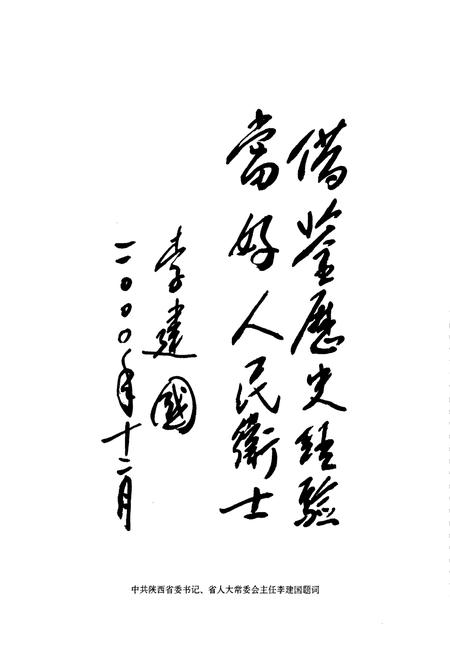 借鉴歷史经驗
當好人民衛士
李建國
二〇〇〇年十二月
中共陕西省委书记、省人大常委会主任李建国题词